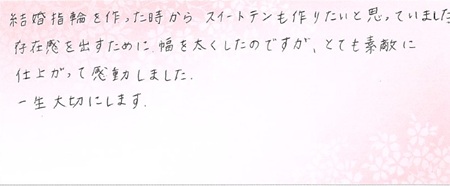 結婚指輪を作った時から スイートテンも作りたいと思っていました
存在感を出すために 幅を太くしたのですが、とても素敵に
仕上がって感動しました.
一生大切にします.